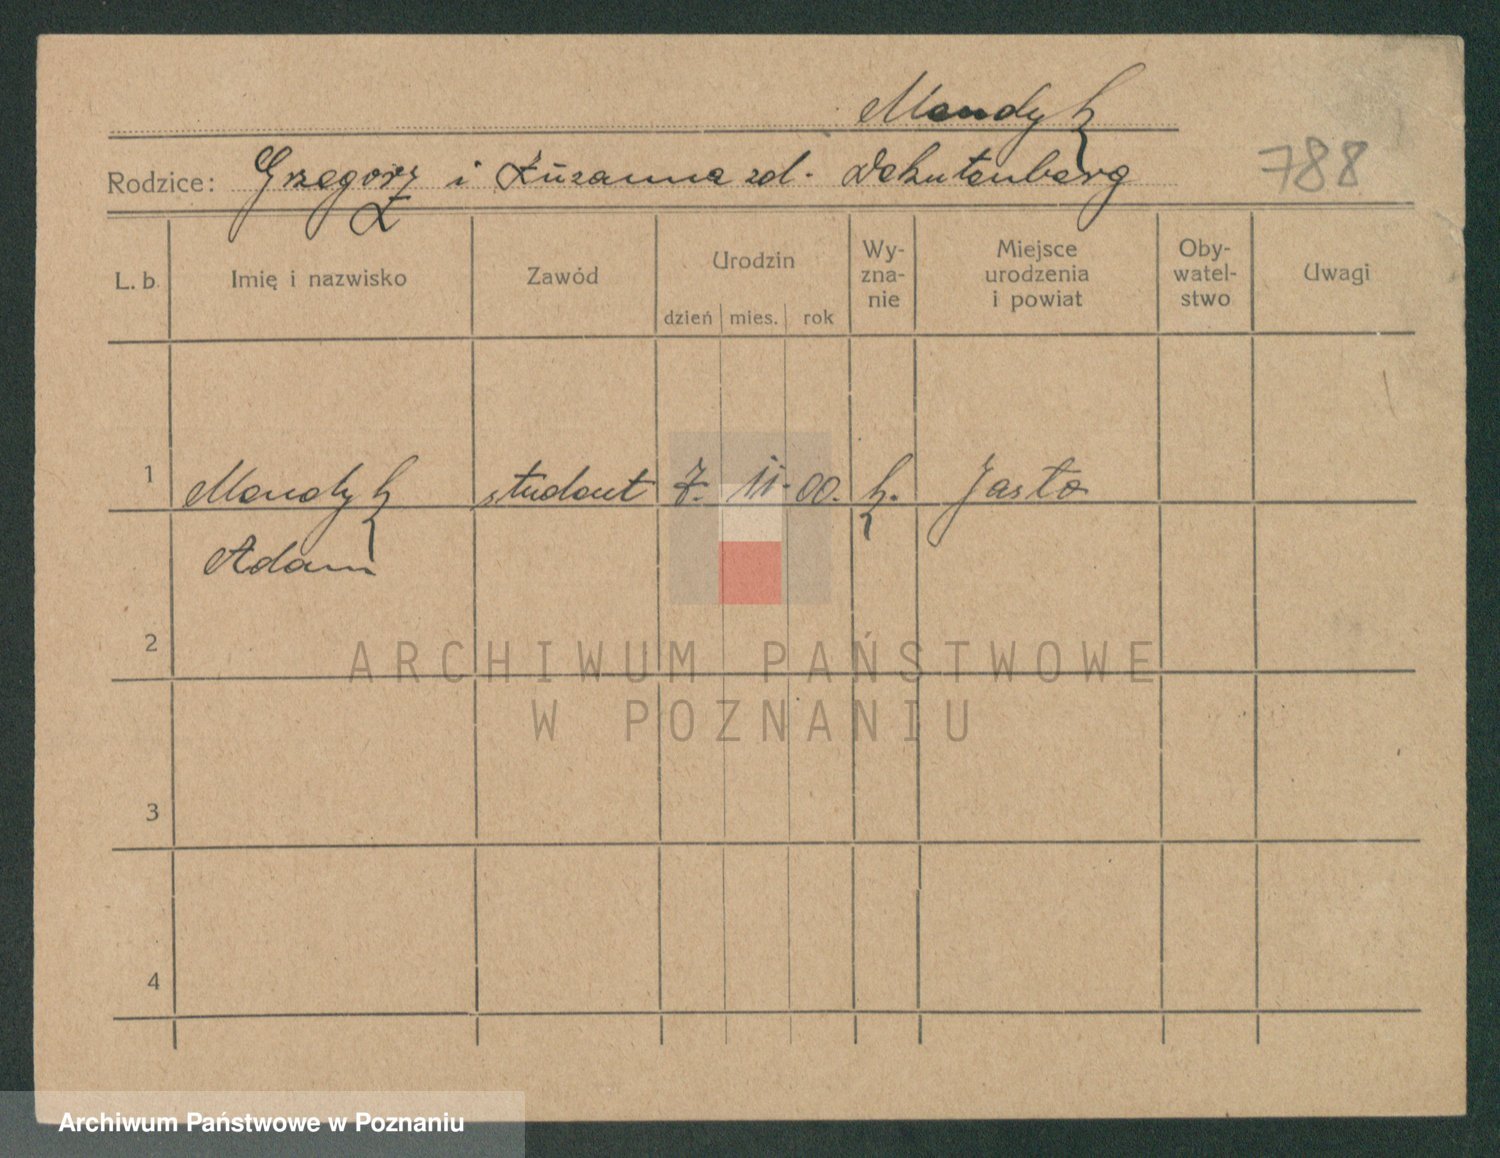 Mendyk
Rodzice: Grzegorz i Zuzanna zd.
788
L. b.
Imię i nazwisko
Zawód
Urodzin
dzień mies. rok
Wy-
zna-
nie
Miejsce
urodzenia
i powiat
Oby-
watel-
stwo
Uwagi
1 Mendyk student 7. 11. 00. k. Jasło
Adam
2
3
4
ARCHIWUM PAŃSTWOWE
W POZNANIU
Archiwum Państwowe w Poznaniu